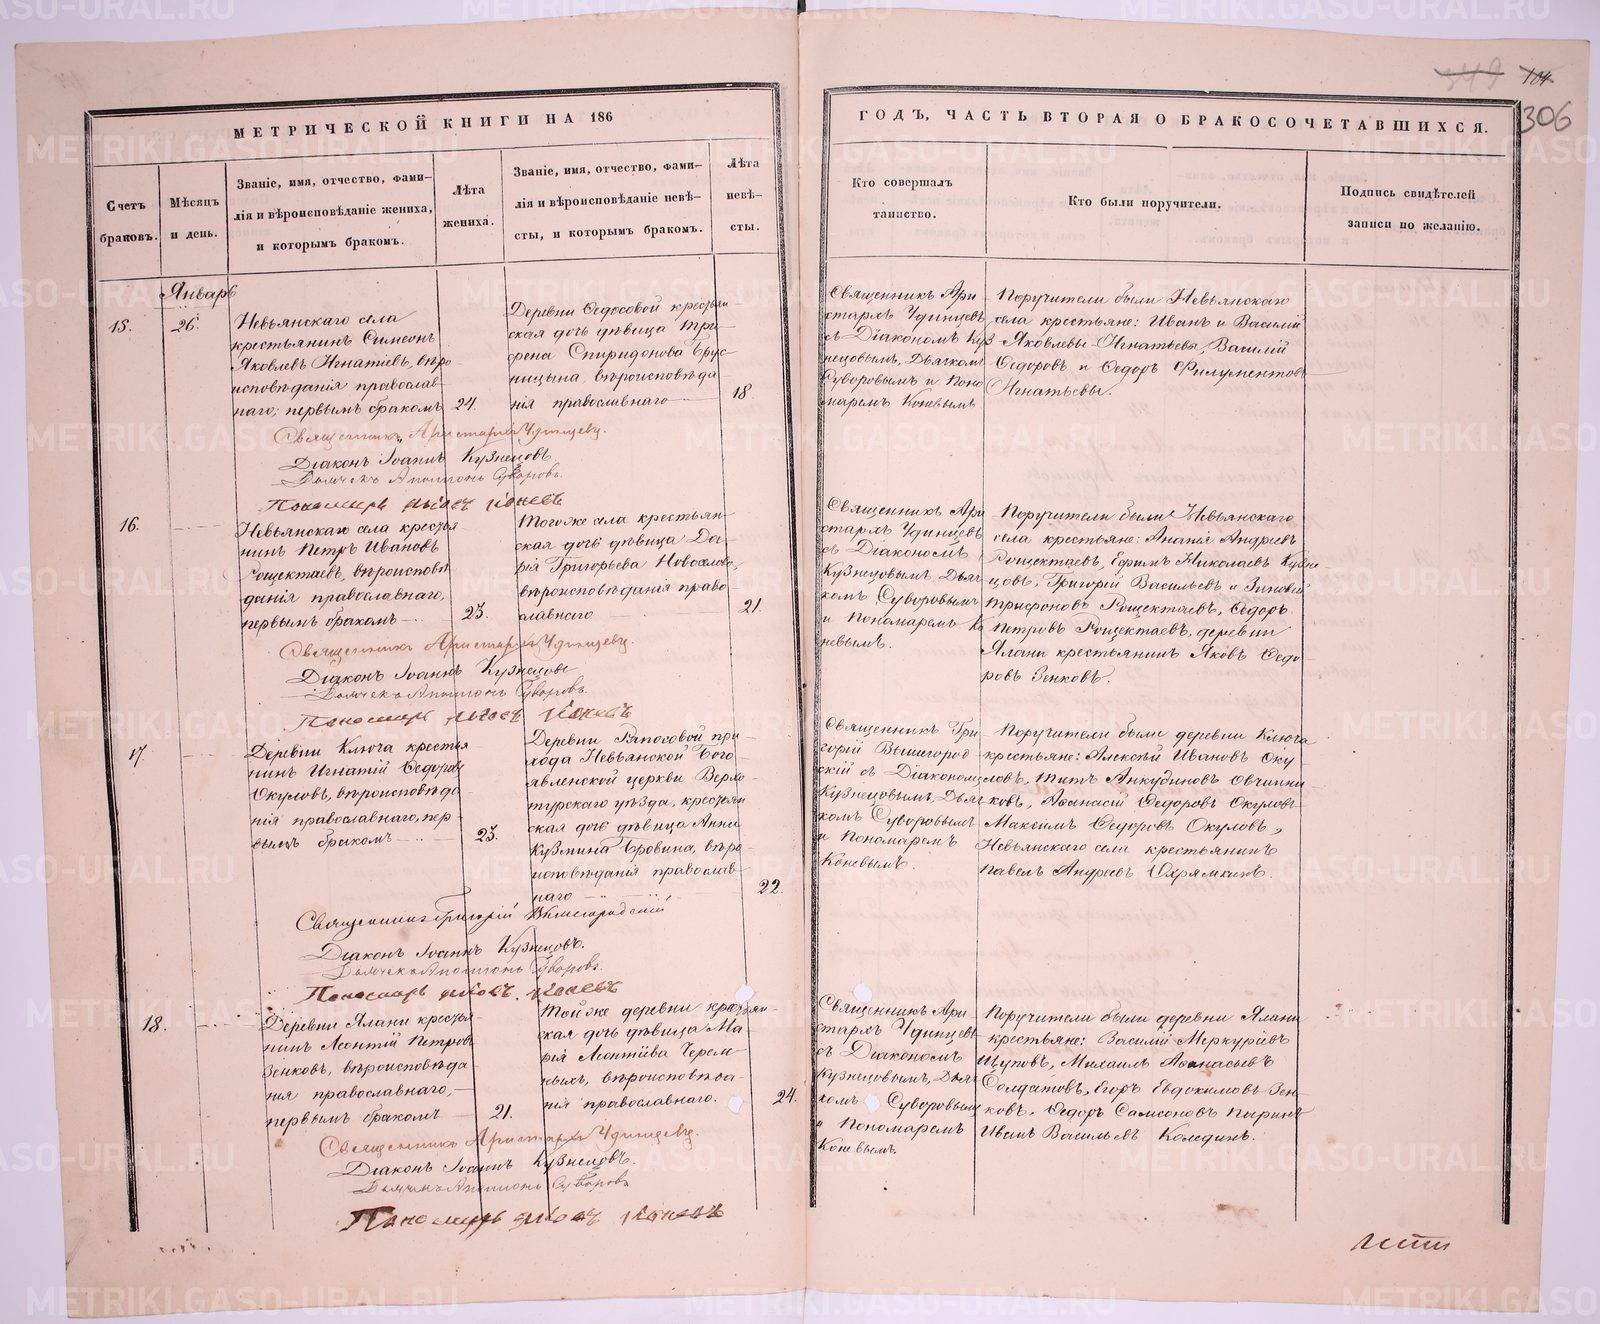 349 104
306
МЕТРИЧЕСКОЙ КНИГИ НА 186
ГОДЪ, ЧАСТЬ ВТОРАЯ О БРАКОСОЧЕТАВШИХСЯ.
Счетъ
браковъ.
Мѣсяцъ
и день.
Званіе, имя, отчество, фами-
лія и вѣроисповѣданіе жениха,
и которымъ бракомъ.
Лѣта
жениха.
Званіе, имя, отчество, фами-
лія и вѣроисповѣданіе невѣ-
сты, и которымъ бракомъ.
Лѣта
невѣ-
сты.
Кто совершалъ
таинство.
Кто были поручители.
Подпись свидѣтелей
записи по желанію.
Январь
15.
26.
Невьянскаго села
крестьянинъ Симеонъ
Яковлевъ Игнатіевъ, вѣро
исповѣданія православ-
наго; первымъ бракомъ
24.
Деревни Ѳедосовой крестьян-
ская дочь дѣвица
Спиридонова Брус-
ницына, вѣроисповѣда
нія православнаго
18.
Священникъ Ари
стархъ Удинцевъ
съ Діакономъ Куз
нецовымъ, Дьячкомъ
Суворовымъ и Поно
маремъ Коневымъ
Поручители были Невьянскаго
села крестьяне: Иванъ и Василій
Яковлевы Игнатьевы, Василій
Ѳедоровъ и Ѳедоръ Филументовъ
Игнатьевы.
Священникъ Аристархъ Удинцевъ.
Діаконъ Іоаннъ Кузнецовъ.
Дьячекъ Аполлонъ Суворовъ.
Пономарь Коневъ
16.
Невьянскаго села крестья
нинъ Петръ Ивановъ
Рощектаевъ, вѣроисповѣ
данія православнаго,
первымъ бракомъ
23.
Того же села крестьян-
ская дочь дѣвица Да-
рія Григорьева Новоселова,
вѣроисповѣданія право
славнаго
21.
Священникъ Ари
стархъ Удинцевъ
съ Діакономъ
Кузнецовымъ, Дьяч
комъ Суворовымъ
и Пономаремъ Ко
невымъ.
Поручители были Невьянскаго
села крестьяне: Ананія Андреевъ
Рощектаевъ, Ефимъ Николаевъ Кузне
цовъ, Григорій Васильевъ и Зиновей
Трифоновъ Рощектаевъ, Ѳедоръ
Петровъ Рощектаевъ, деревни
Ялани крестьянинъ Яковъ Ѳедо
ровъ Зенковъ.
Священникъ Аристархъ Удинцевъ.
Діаконъ Іоаннъ Кузнецовъ
Дьячекъ Аполлонъ Суворовъ.
Пономарь Коневъ
17.
Деревни Ключа крестья
нинъ Игнатій Ѳедоровъ
Окуловъ, вѣроисповѣда
нія православнаго, пер-
вымъ бракомъ
23.
Деревни Ряпосовой при-
хода Невьянской Бого-
явленской церкви Верхо-
турскаго уѣзда, крестьян
ская дочь дѣвица Анна
Кузмина Бровина, вѣро
исповѣданія православ-
наго
22.
Священникъ Гри
горій Вышегород
скій съ Діакономъ
Кузнецовымъ, Дьяч
комъ Суворовымъ
и Пономаремъ
Коневымъ.
Поручители были деревни Ключа
крестьяне: Алексѣй Ивановъ Оку
ловъ, Титъ Анкудиновъ Овчинни
ковъ, Аѳанасій Ѳедоровъ Окуловъ
Максимъ Ѳедоровъ Окуловъ,
Невьянскаго села крестьянинъ
Павелъ Андреевъ Охрямкинъ.
Священникъ Григорій Вышегородскій
Діаконъ Іоаннъ Кузнецовъ.
Дьячекъ Аполлонъ Суворовъ.
Пономарь Коневъ
18.
Деревни Ялани крестья-
нинъ Леонтій Петровъ
Зенковъ, вѣроисповѣда
нія православнаго,
первымъ бракомъ
21.
Той же деревни крестьян-
ская дочь дѣвица Ма-
рія Леонтіева Черем-
ныхъ, вѣроисповѣда-
нія православнаго.
24.
Священникъ Ари
стархъ Удинцевъ
съ Діакономъ
Кузнецовымъ, Дьяч
комъ Суворовымъ
и Пономаремъ
Коневымъ.
Поручители были деревни Ялани
крестьяне: Василій Меркурьевъ
Щуповъ, Михаилъ Аѳанасьевъ
Солдатовъ, Егоръ Евдокимовъ Зен-
ковъ, Ѳедоръ Самсоновъ
Иванъ Васильевъ Колединъ.
Священникъ Аристархъ Удинцевъ.
Діаконъ Іоаннъ Кузнецовъ.
Дьячекъ Аполлонъ Суворовъ
Пономарь Коневъ
METRIKI.GASO-URAL.RU